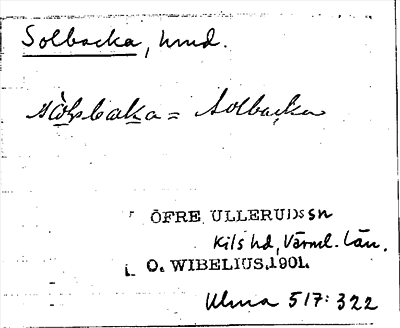 Solbacka, hmd.
sòḷsbaka = Solbacka
ÖFRE ULLERUDssn
Kils hd, Värml. län.
O. WIBELIUS, 1901.
Ulma 517:322